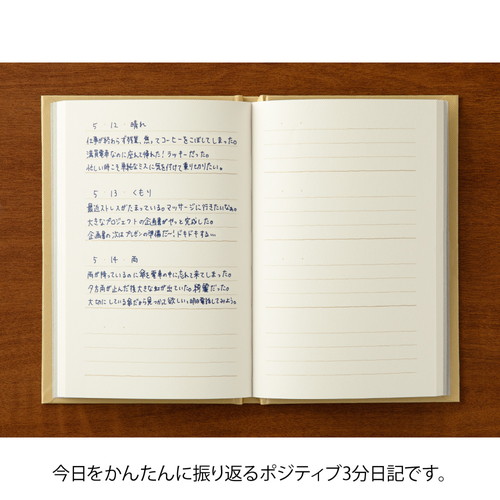 5 ・ 12 晴れ
仕事が終わらず残業。焦ってコーヒーをこぼしてしまった。
満員電車なのに座れて帰れた！ラッキーだった。
忙しい時こそ単純なミスに気を付けて乗りきりたい。
5 ・ 13 くもり
最近ストレスがたまっている。マッサージに行きたいなぁ。
大きなプロジェクトの企画書がやっと完成した。
企画書の次はプレゼンの準備だー！ドキドキする〜
5 ・ 14 雨
雨が降っているのに傘を電車の中に忘れて来てしまった。
夕方雨が止んだ後大きな虹が出ていた。綺麗だった。
大切にしている傘だから見つかって欲しい。明日電話してみよう。
今日をかんたんに振り返るポジティブ3分日記です。